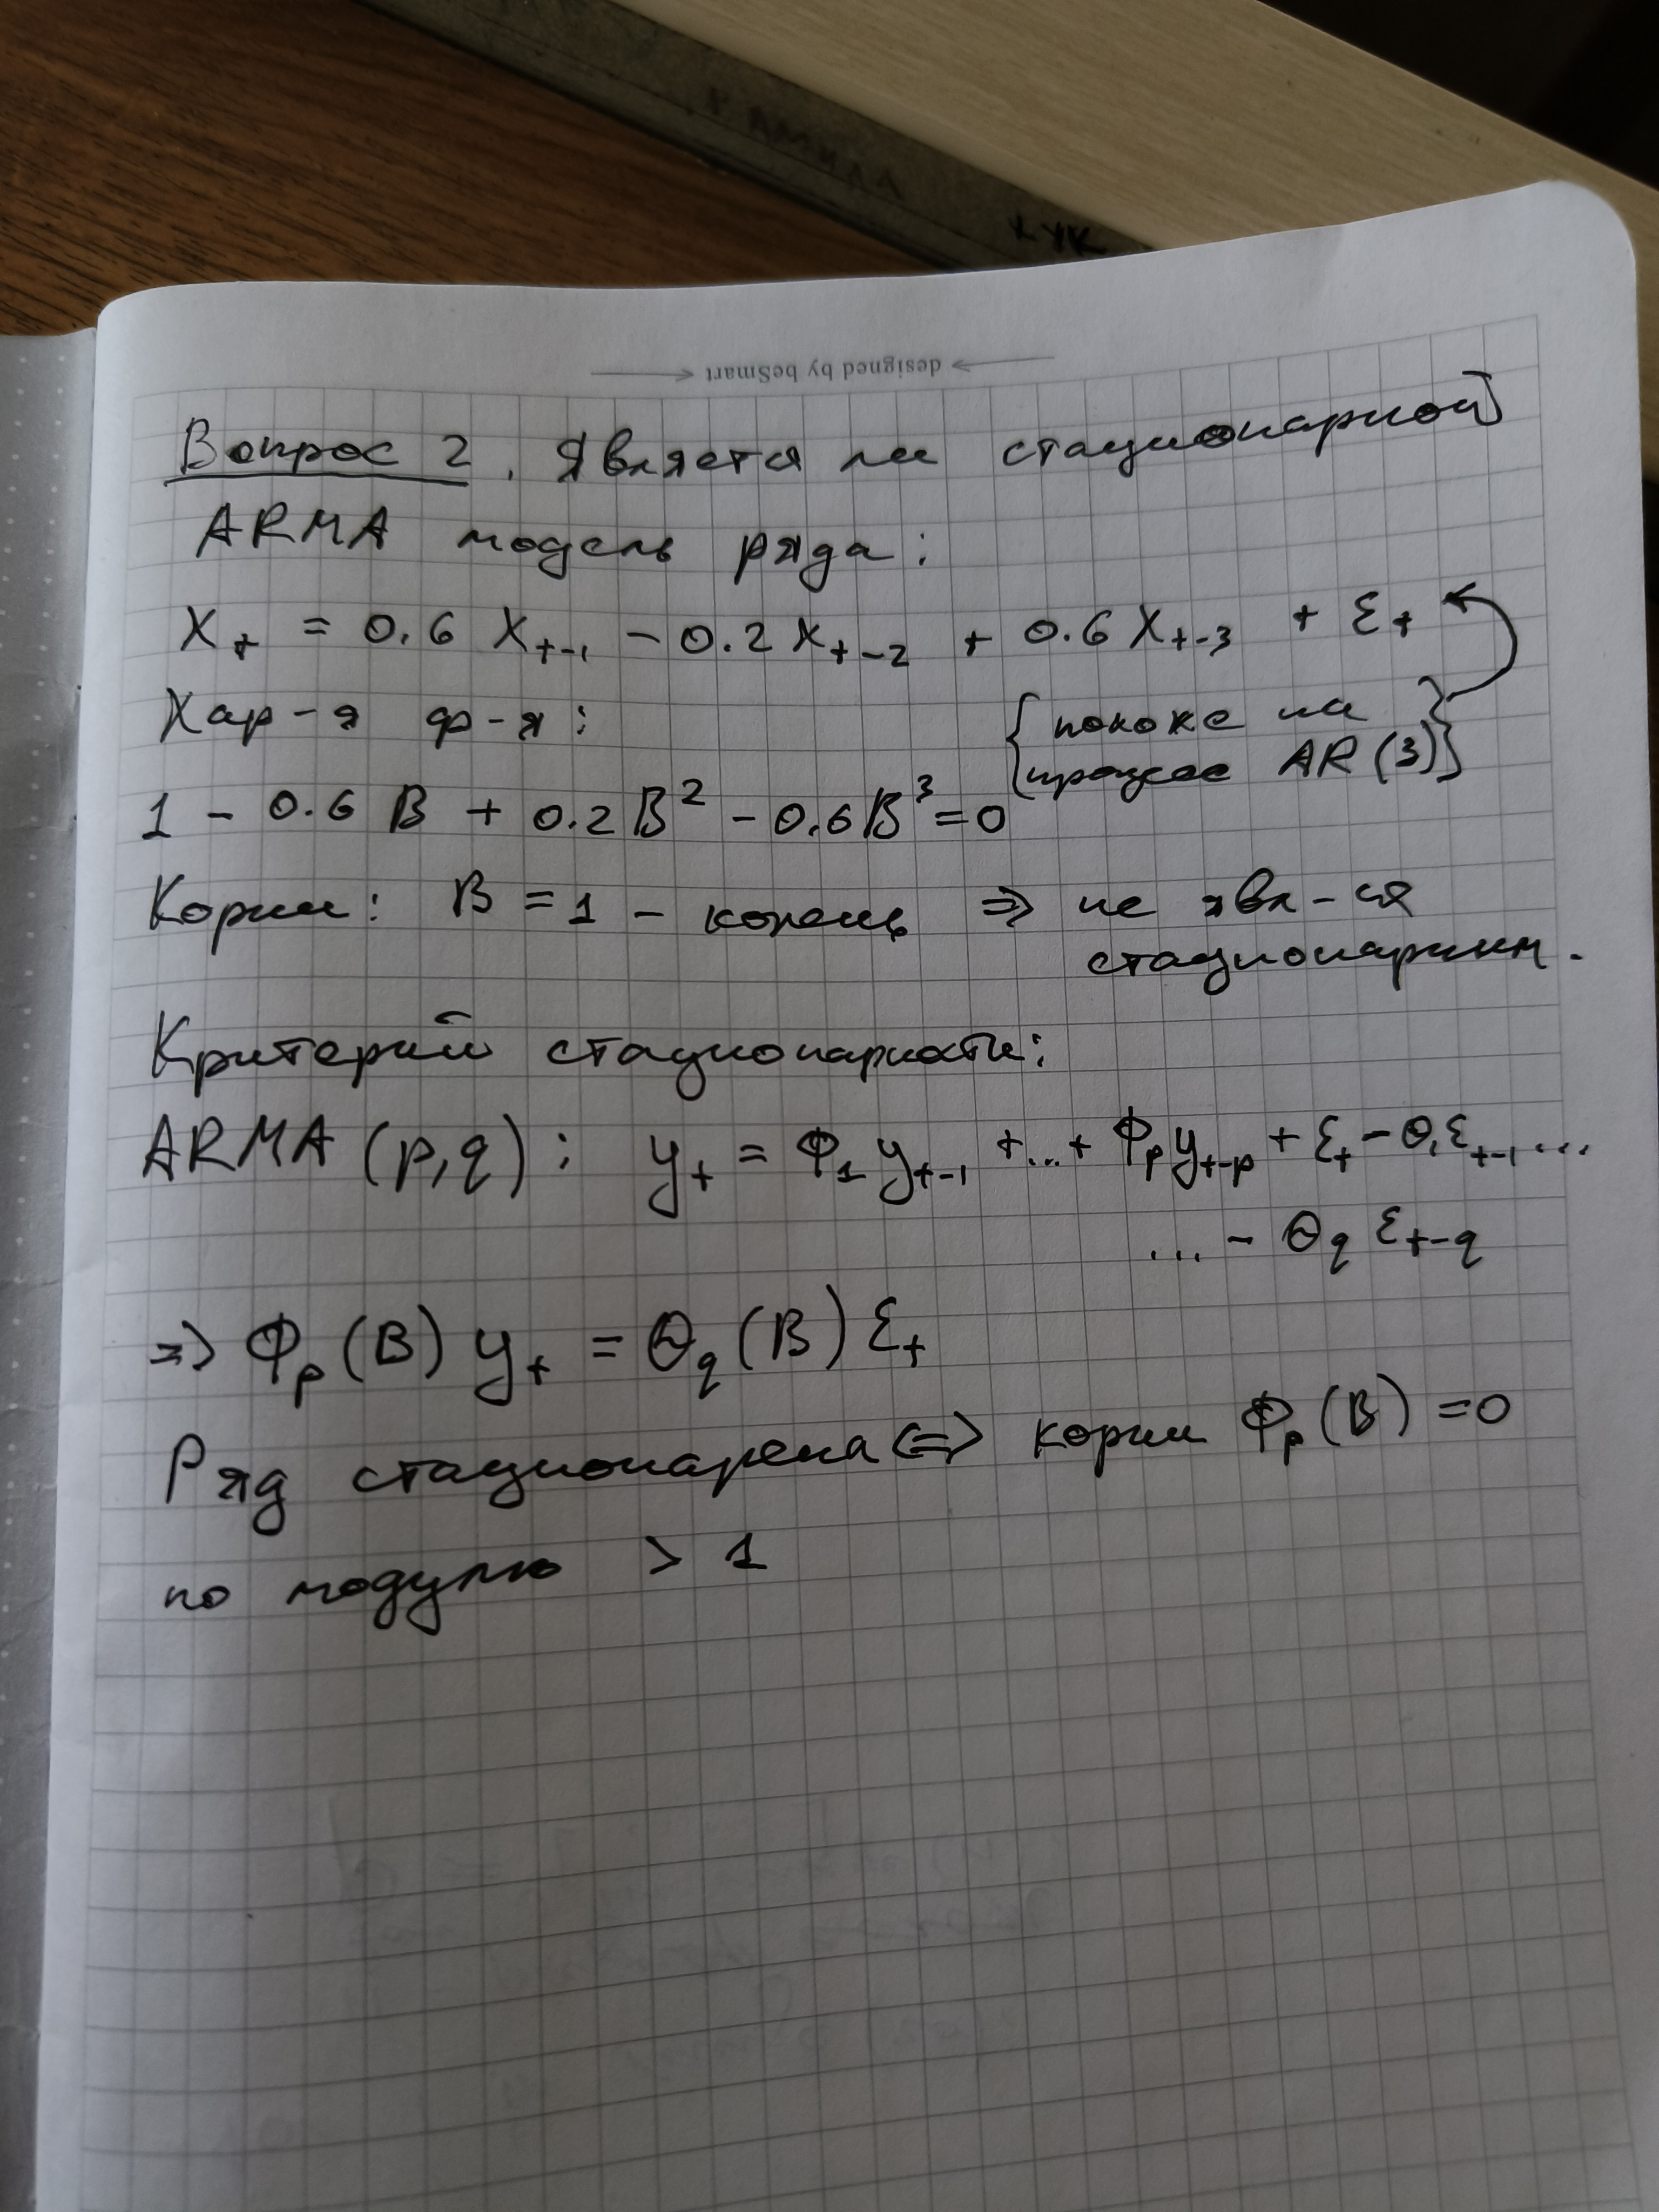 ФАМИЛ
designed by beSmart
Вопрос 2. Является ли стационарной
ARMA модель ряда:
X_t = 0.6 X_{t-1} - 0.2 X_{t-2} + 0.6 X_{t-3} + ε_t
Хар-я ф-я:
{похоже на
процесс AR(3)}
1 - 0.6 B + 0.2 B² - 0.6 B³ = 0
Корни: B = 1 - корень ⇒ не явл-ся
стационарным.
Критерий стационарности:
ARMA (p,q): y_t = Φ_1 y_{t-1} + ... + Φ_p y_{t-p} + ε_t - θ_1 ε_{t-1} ...
... - θ_q ε_{t-q}
⇒ Φ_p (B) y_t = Θ_q (B) ε_t
Ряд стационарен ⇔ корни Φ_p (B) = 0
по модулю > 1